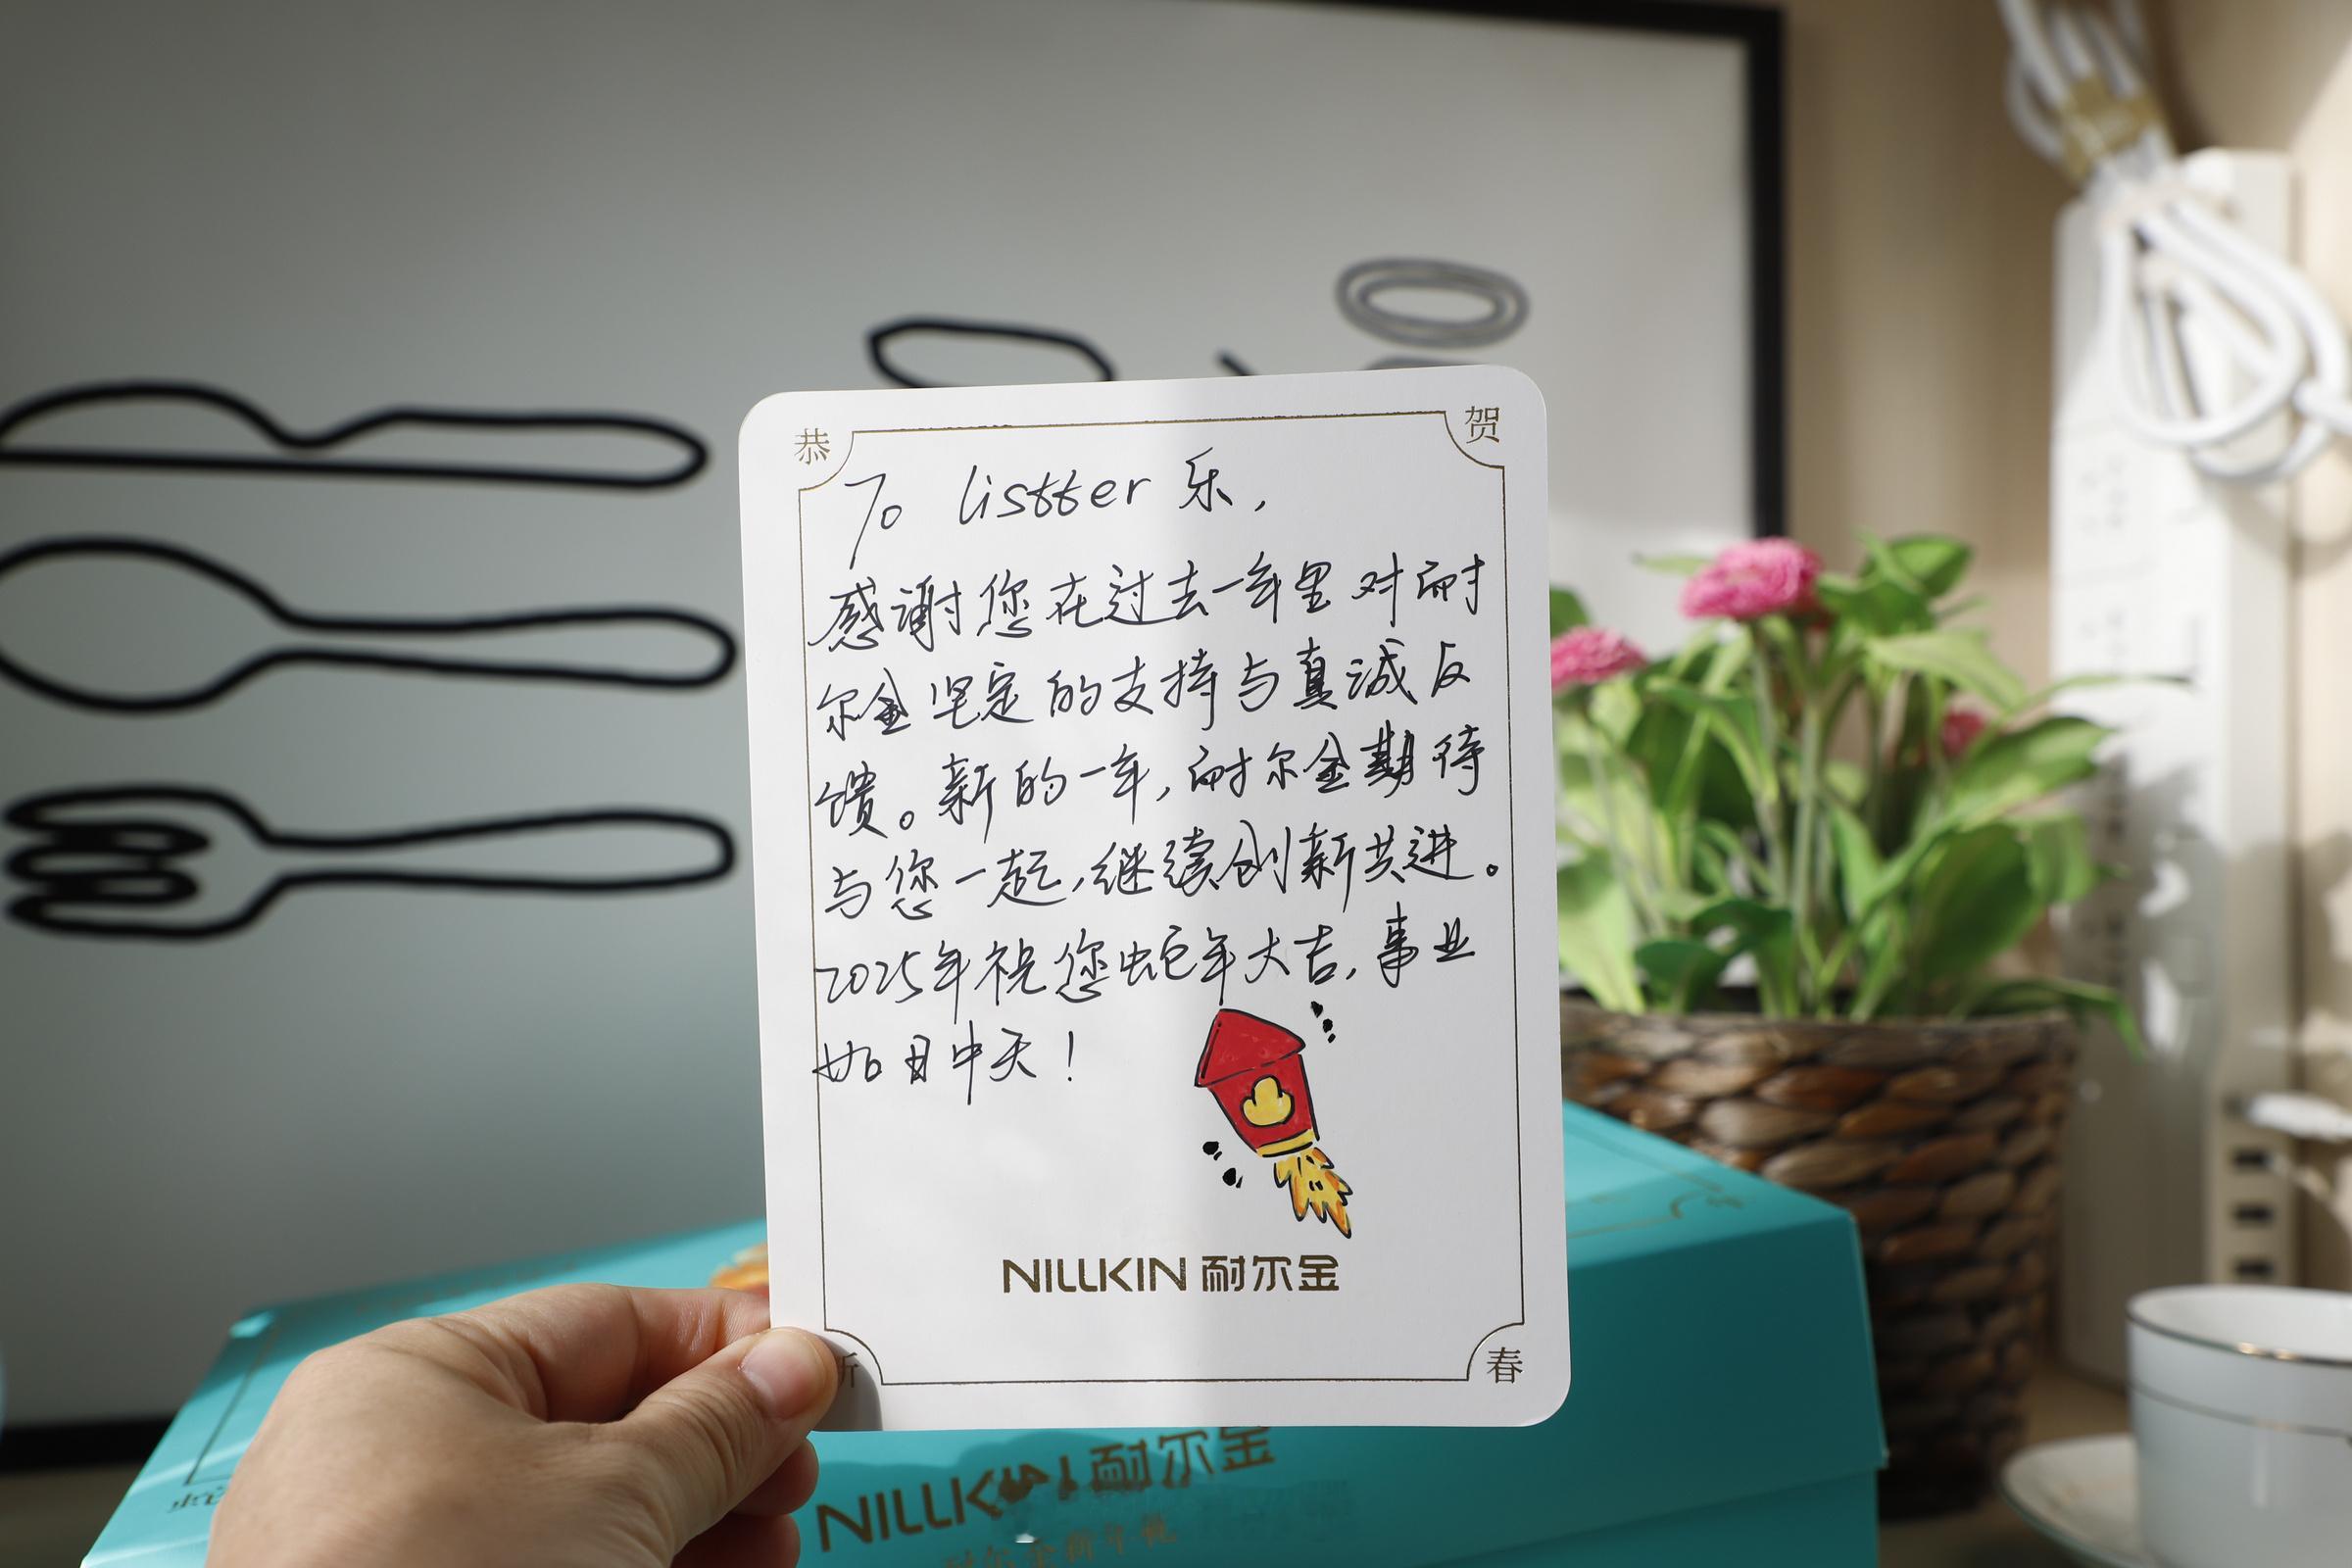 恭 贺
To listtter 乐,
感谢您在过去一年里对耐
尔金坚定的支持与真诚反
馈。新的一年,耐尔金期待
与您一起,继续创新共进。
2025年祝您蛇年大吉,事业
如日中天!
NILLKIN 耐尔金
新 春
NILLKIN 耐尔金
耐尔金新年礼